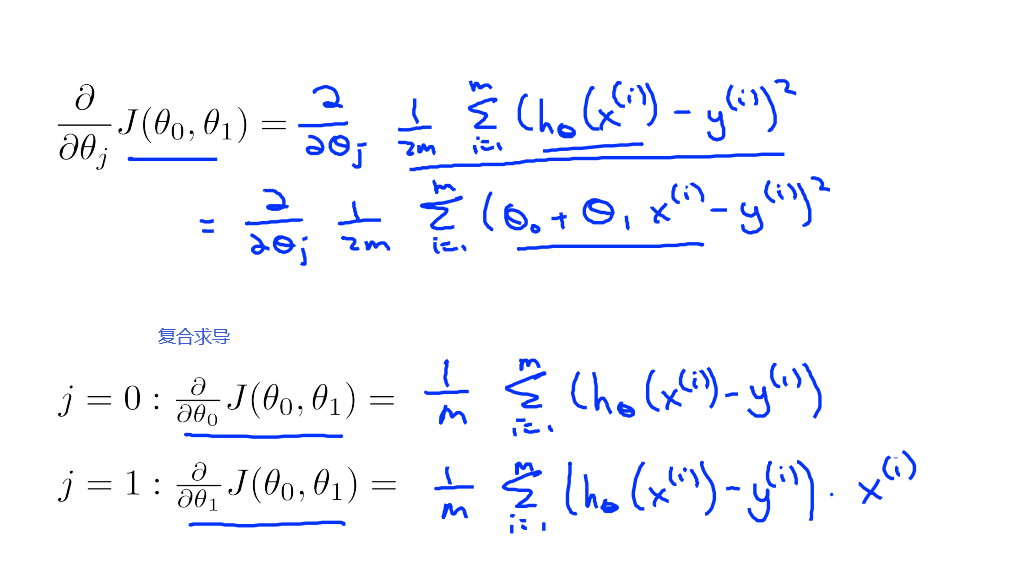 ∂/∂θ_j J(θ₀, θ₁) = ∂/∂θ_j 1/2m Σ_{i=1}^{m} (h_θ(x^(i)) − y^(i))²
= ∂/∂θ_j 1/2m Σ_{i=1}^{m} (θ₀ + θ₁ x^(i) − y^(i))²
复合求导
j = 0 : ∂/∂θ₀ J(θ₀, θ₁) = 1/m Σ_{i=1}^{m} (h_θ(x^(i)) − y^(i))
j = 1 : ∂/∂θ₁ J(θ₀, θ₁) = 1/m Σ_{i=1}^{m} (h_θ(x^(i)) − y^(i)) · x^(i)